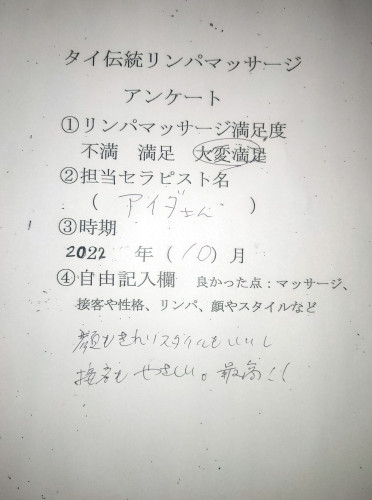 タイ伝統リンパマッサージ
アンケート
①リンパマッサージ満足度
不満 満足 大変満足
②担当セラピスト名
( アイダさん )
③時期
2022 年 (10) 月
④自由記入欄 良かった点:マッサージ、
接客や性格、リンパ、顔やスタイルなど
顔もきれいスタイルもいいし
接客もやさしい。最高!!